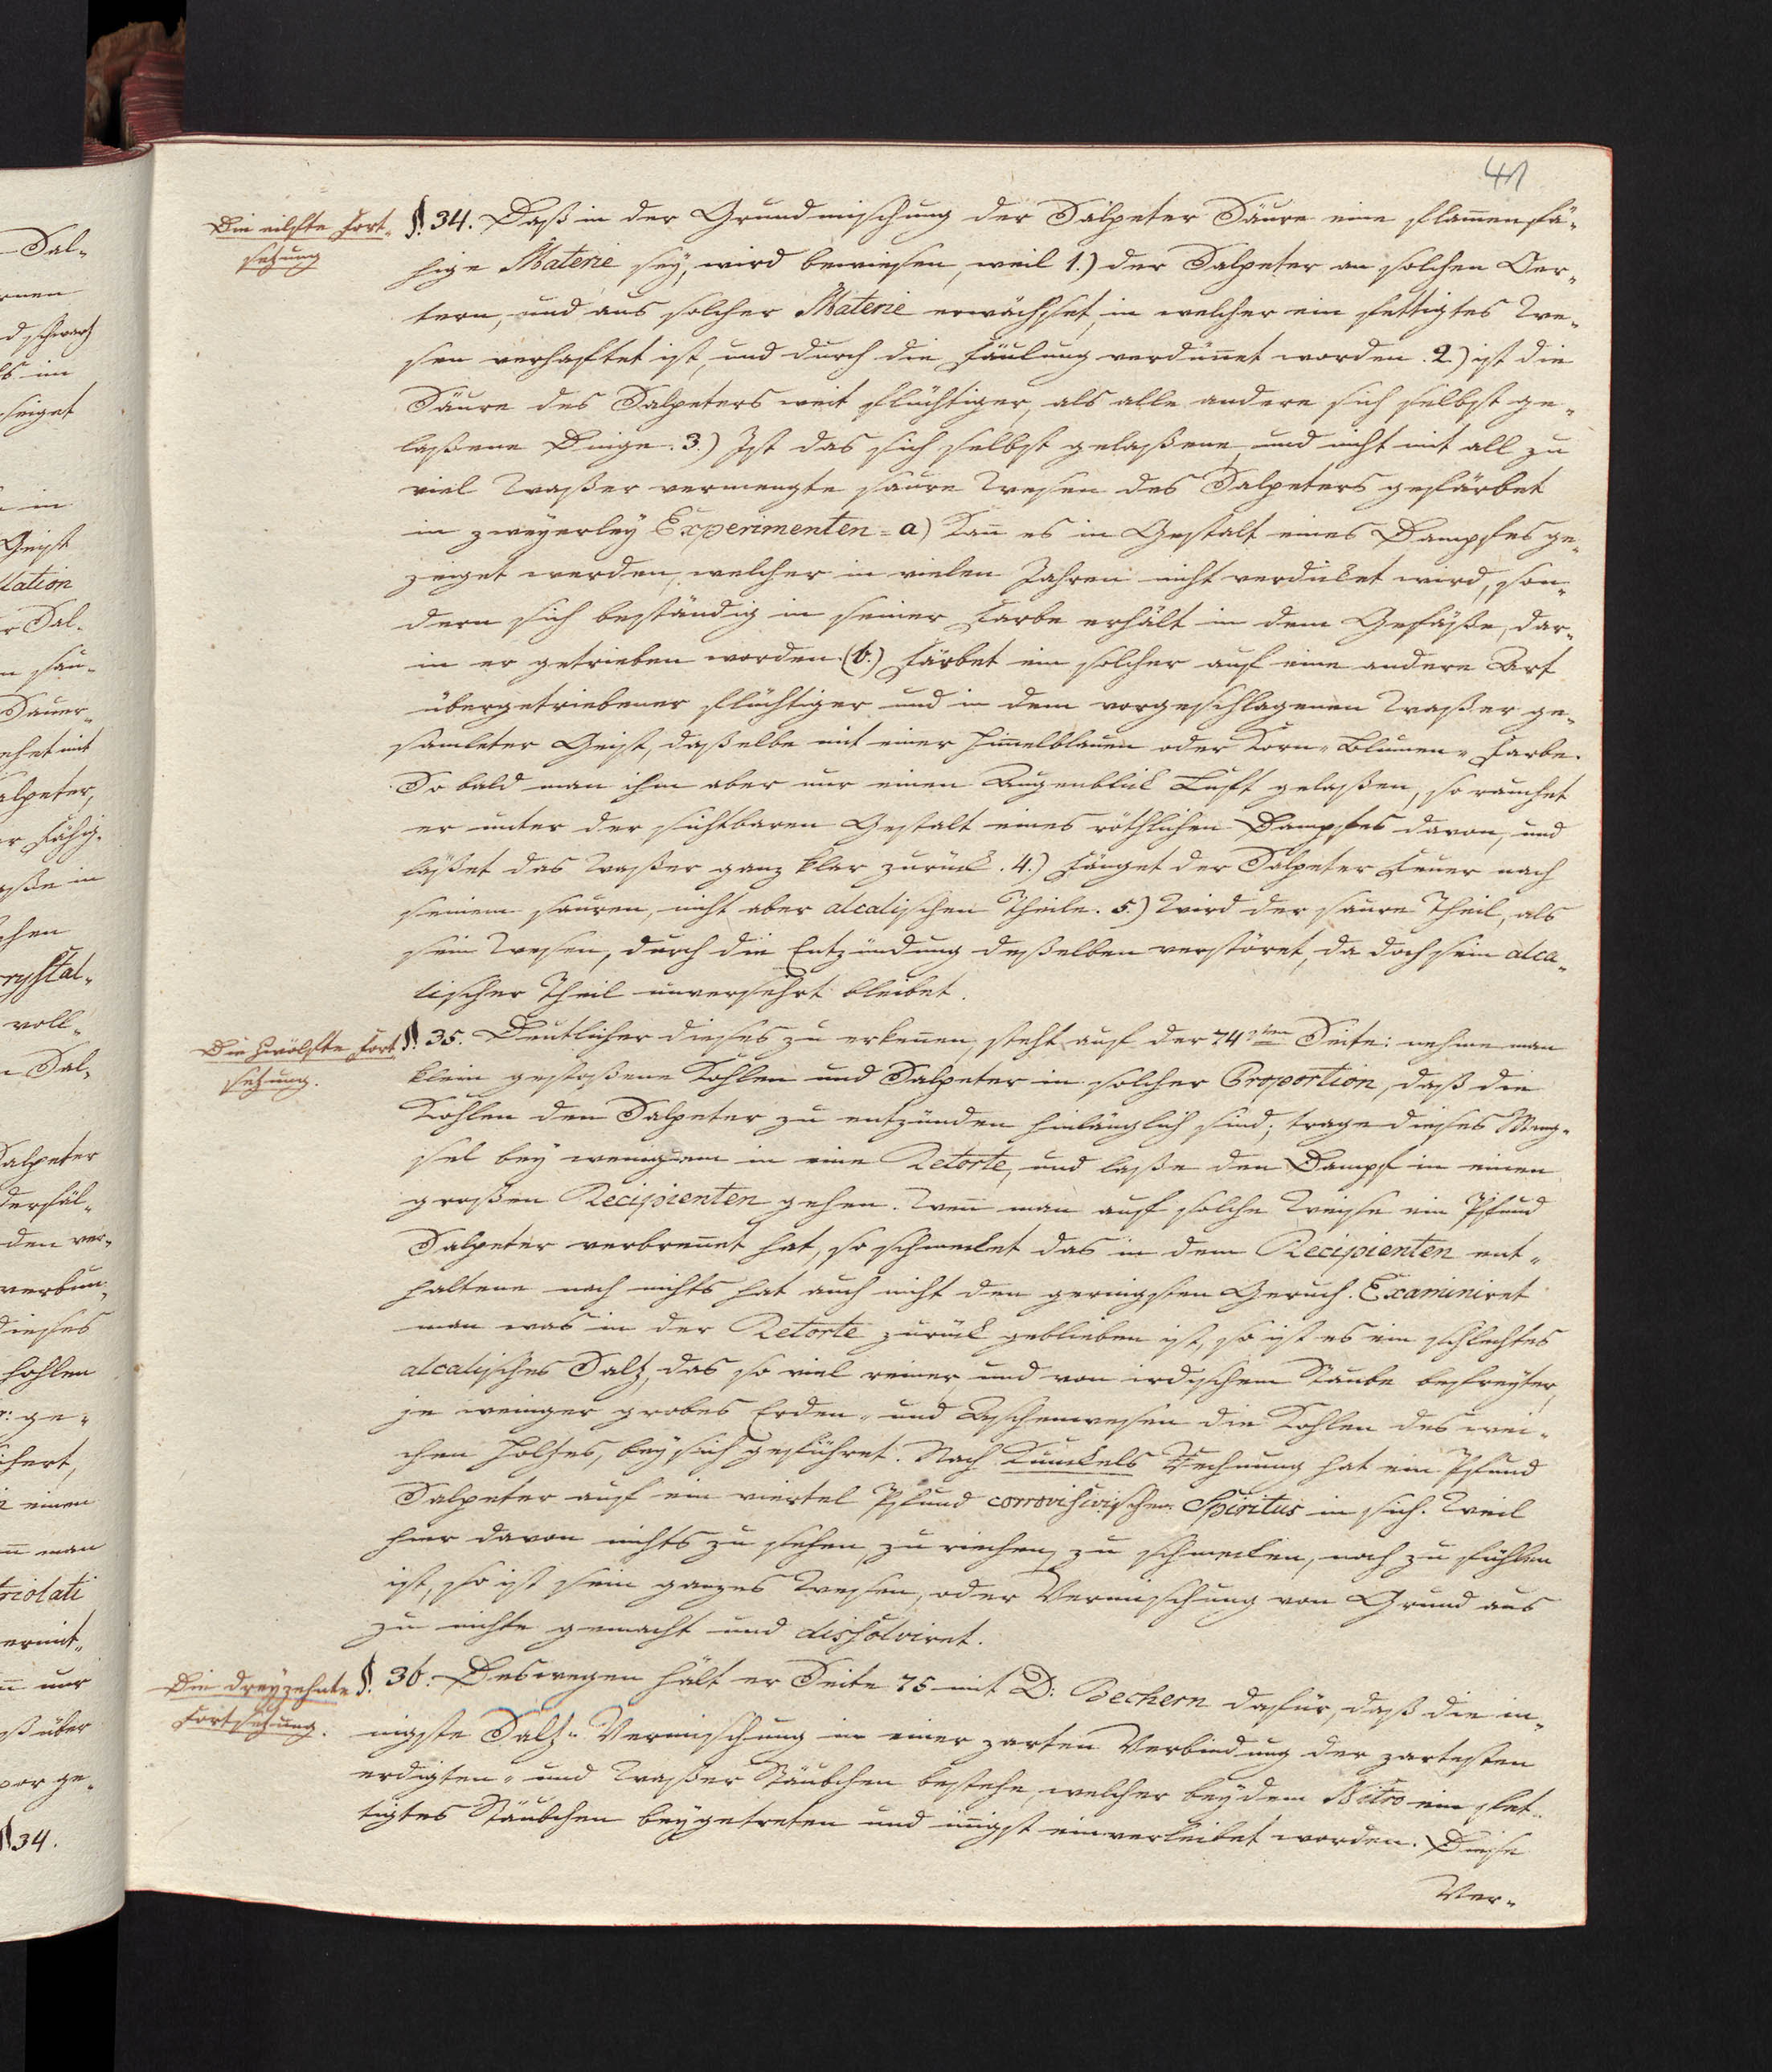 41
Die eilfte Fort-
setzung
§. 34. Daß in der Grundmischung der Salpeter Säure eine flammenfä-
hige Materie sey, wird bewiesen, weil 1.) der Salpeter an solchen Oer-
tern, und aus solcher Materie erwächset, in welcher ein fettigtes We-
sen verhafftet ist, und durch die Fäulung verdünnet worden. 2.) ist die
Säure des Salpeters weit flüchtiger, als alle andere sich selbst ge-
laßene Dinge. 3.) Ist das sich selbst gelaßene und nicht mit all zu
viel Waßer vermengte saure Wesen des Salpeters gefärbet
in zweyerley Experimenten = a) Kann es in Gestalt eines Dampfes ge-
zeiget werden, welcher in vielen Jahren nicht verdicket wird, son-
dern sich beständig in seiner Farbe erhält in dem Gefäße, dar-
in er getrieben worden. (b.) Färbet ein solcher auf eine andere Art
übergetriebener flüchtiger und in dem vorgeschlagenen Waßer ge-
samleter Geist, daßelbe mit einer Himmelblauen oder Korn-Blumen-Farbe.
So bald man ihm aber nur einen Augenblick Luft gelaßen, so rauchet
er unter der sichtbaren Gestalt eines röthlichen Dampfes davon, und
läßet das Waßer ganz klar zurück. 4.) Fänget der Salpeter Feuer nach
seinem sauren, nicht aber alcalischen Theile. 5.) Wird der saure Theil, als
sein Wesen, durch die Entzündung deßelben verstöret, da doch sein alca-
lischer Theil unversehrt bleibet.
Die zwölfte Fort
setzung.
§. 35. Deutlicher dieses zu erkennen, steht auf der 74sten Seite: nehme man
klein gestoßene Kohlen und Salpeter in solcher Proportion, daß die
Kohlen den Salpeter zu entzünden hinlänglich sind; trage dieses Meng-
sel bey wenigem in eine Retorte, und laße den Dampf in einen
großen Recipienten gehen. Wenn man auf solche Weise ein Pfund
Salpeter verbrennet hat, so schmecket das in dem Recipienten ent-
haltene nach nichts hat auch nicht den geringsten Geruch. Examiniret
man was in der Retorte zurück geblieben ist, so ist es ein schlechtes
alcalisches Saltz, das so viel reiner und von irdischem Staube befreyter,
je weniger grobes Erden- und Aschenwesen die Kohlen des wei-
chen Holzes, bey sich geführet. Nach Kunckels Rechnung hat ein Pfund
Salpeter auf ein viertel Pfund corrosivischen Spiritus in sich. Weil
hier davon nichts zu sehen, zu riechen, zu schmecken, noch zu fühlen
ist, so ist sein ganzes Wesen, oder Vermischung von Grund aus
zu nichte gemacht und dissolviret.
Die dreyzehnte
Fortsetzung.
§. 36. Deswegen hält er Seite 75 mit D: Bechern dafür, daß die in-
nigste Saltz-Vermischung in einer zarten Verbindung der zartesten
erdigten- und Waßer Stäubchen bestehe, welcher bey dem Nitro ein fet-
tigtes Stäubchen beygetreten und innigst einverleibet worden. Diese
Ver-